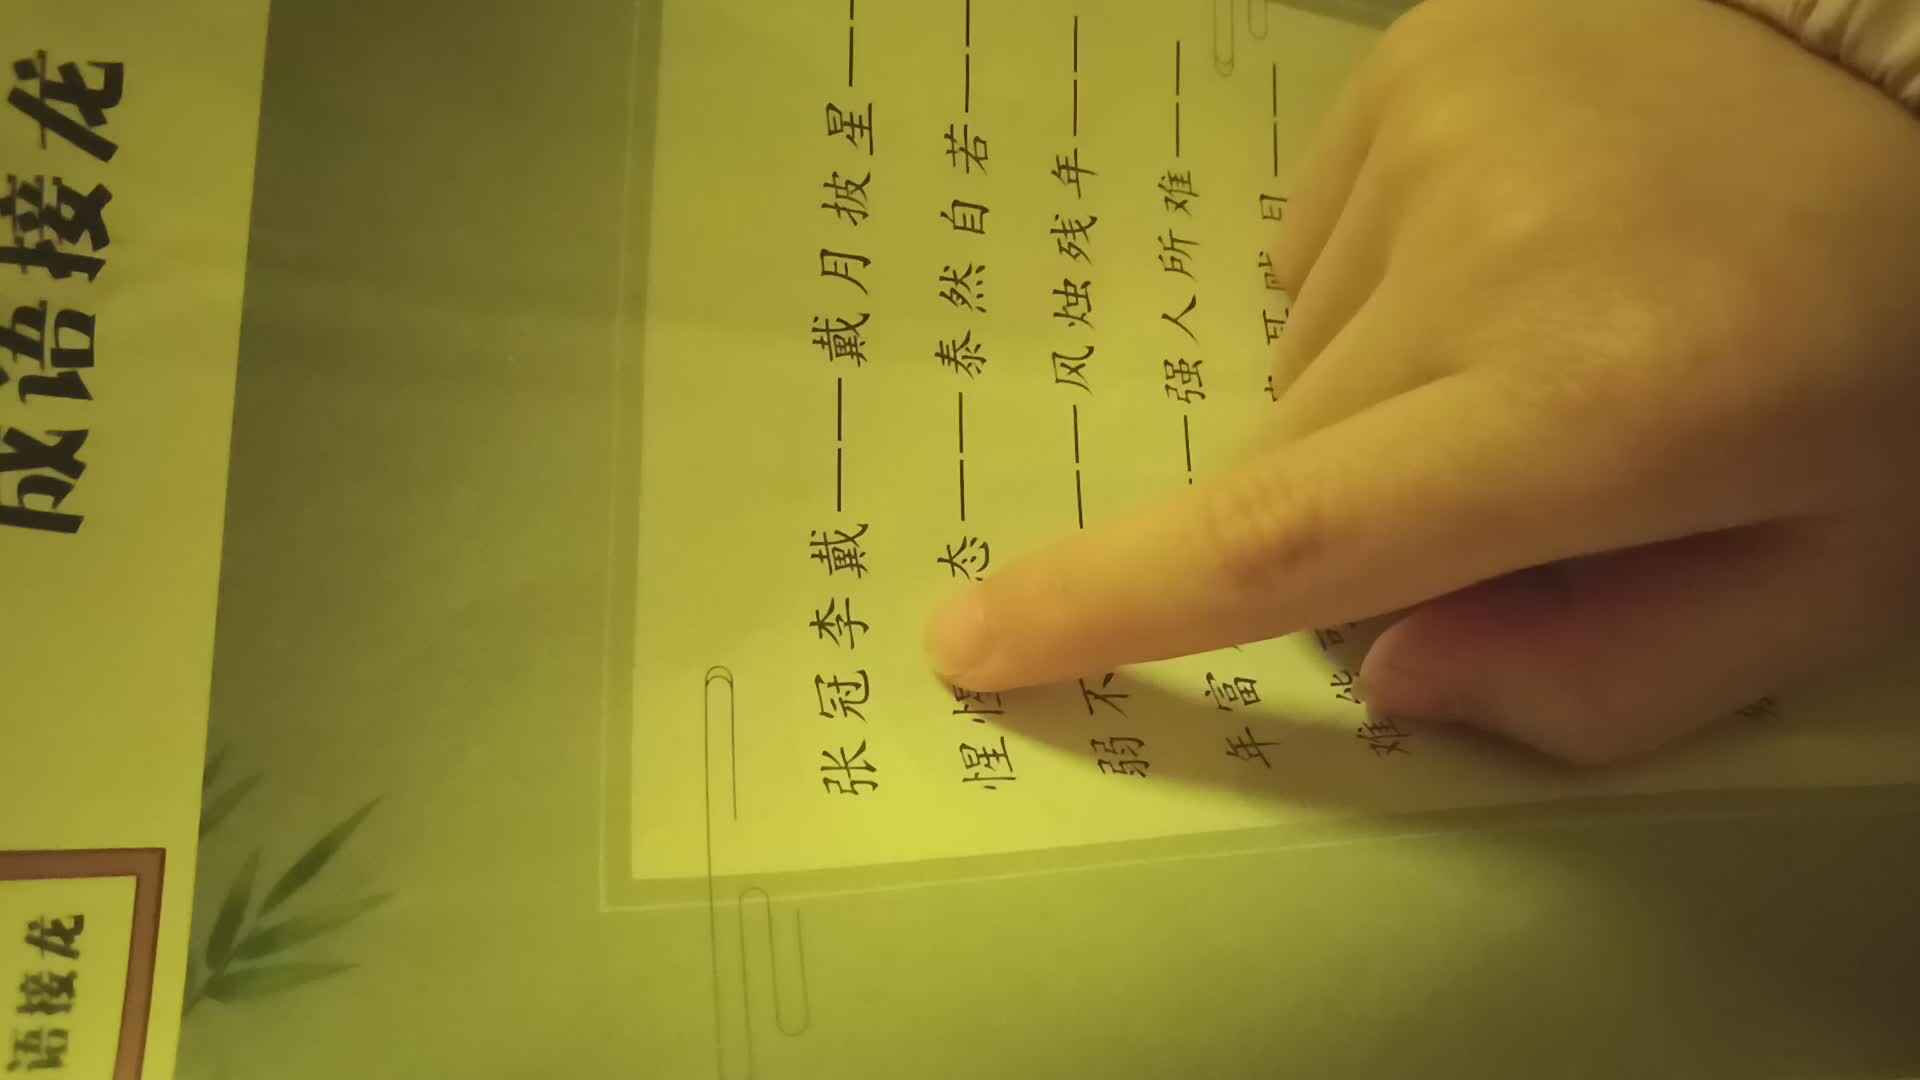 成语接龙
语接龙
张冠李戴———戴月披星——
惺惺态———泰然自若——
弱不———风烛残年——
年富——强人所难——
难